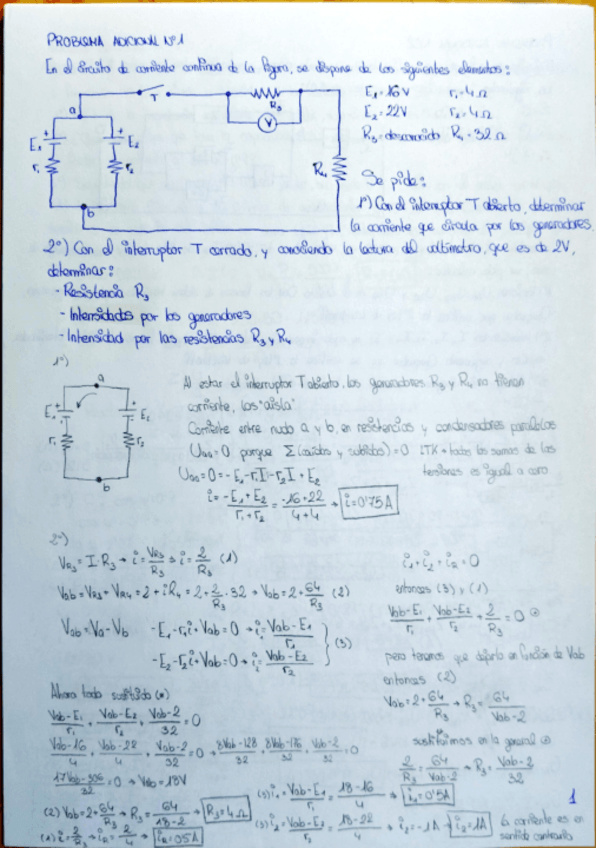 PROBLEMA ADICIONAL Nº1
En el circuito de corriente continua de la figura, se dispone de los siguientes elementos:
E₁=16V r₁=4Ω
E₂=22V r₂=4Ω
R₃=desconocido R₄=32Ω
a T R₃ V
E₁ E₂ r₁ r₂ R₄
b
Se pide:
1º) Con el interruptor T abierto, determinar
la corriente que circula por los generadores.
2º) Con el interruptor T cerrado, y conociendo la lectura del voltímetro, que es de 2V,
determinar:
- Resistencia R₃
- Intensidades por los generadores
- Intensidad por las resistencias R₃ y R₄
1º)
a E₁ E₂ r₁ r₂ b
Al estar el interruptor T abierto, los generadores R₃ y R₄ no tienen
corriente, los "aisla"
Corriente entre nudo a y b, en resistencias y condensadores paralelos
=0 porque Σ(caídas y subidas)=0 LTK → todas las sumas de las
tensiones es igual a cero
=0=-E₁-r₁I-r₂I+E₂
i=(-E₁+E₂)/(r₁+r₂)=(-16+22)/(4+4) → i=0'75A
2º)
V_R₃=I·R₃ → i=V_R₃/R₃ → i=2/R₃ (1)
Vab=V_R₃+V_R₄=2+iR₄=2+2/R₃·32 → Vab=2+64/R₃ (2)
Vab=Va-Vb -E₁-r₁i+Vab=0 → i₁=(Vab-E₁)/r₁
-E₂-r₂i+Vab=0 → i₂=(Vab-E₂)/r₂ } (3)
i₁+i₂+i_R=0
entonces (3) y (1)
(Vab-E₁)/r₁+(Vab-E₂)/r₂+2/R₃=0
pero tenemos que dejarlo en función de Vab
entonces (2)
Vab=2+64/R₃ → R₃=64/(Vab-2)
sustituimos en la general
2/R₃=64/(Vab-2) → R₃=(Vab-2)/32
Ahora todo sustituido (*)
(Vab-E₁)/r₁+(Vab-E₂)/r₂+(Vab-2)/32=0
(Vab-16)/4+(Vab-22)/4+(Vab-2)/32=0 → (8Vab-128)/32+(8Vab-176)/32+(Vab-2)/32=0
(17Vab-306)/32=0 → Vab=18V
(2) Vab=2+64/R₃ → R₃=64/(18-2) → R₃=4Ω
(1) i=2/R₃ → i_R=2/4 → i_R=0'5A
(3) i₁=(Vab-E₁)/r₁=(18-16)/4 → i₁=0'5A
(3) i₂=(Vab-E₂)/r₂=(18-22)/4 → i₂=-1A → i₂=1A
la corriente es en
sentido contrario
1